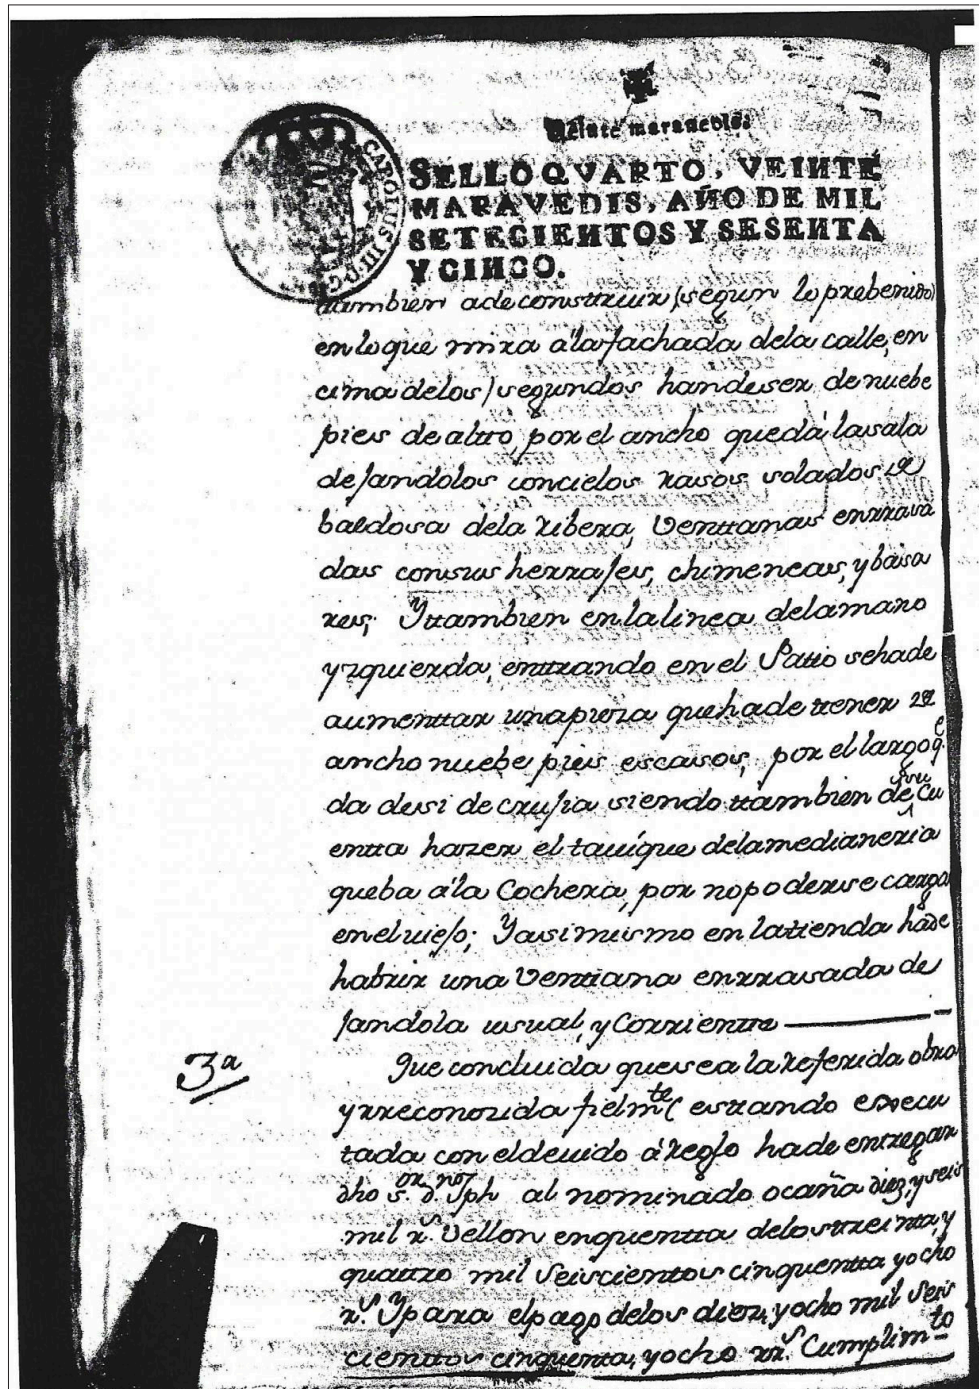 Veinte maravedis.
SELLO QVARTO, VEINTE
MARAVEDIS, AÑO DE MIL
SETECIENTOS Y SESENTA
Y CINCO.
CAROLUS III D G
ttambien a de consttruir (segun lo prebenido)
en lo que mira â la fachada de la calle, en
cima de los segundos han de ser de nuebe
pies de altto, por el ancho que dá la sala
dejandolos con cielos rasos solados de
baldosa de la ribera, Venttanas enrrasa
das con sus herrajes, chimeneas, y basa
res; Y ttambien en la linea de la mano
yzquierda, enttrando en el Pattio se ha de
aumenttar una pieza que ha de ttener de
ancho nuebe pies escasos, por el largo q.e
da de si de crujia siendo ttambien de su Cu
entta hazer el tauique de la medianeria
que ba â la Cochera, por no poderse cargar
en el uiejo; Y asimismo en la ttienda ha de
habrir una Venttana enrrasada de
jandola usual, y Corrientte
3a
Que concluida que sea la referida obra
y rreconozida fielm.te (esttando execu
tada con el deuido árreglo ha de entregar
dho s.or d.n Jph al nominado ocaña diez, y seis
mil r.s Vellon en quentta de los ttreintta, y
quattro mil Seiscienttos cinquentta y ocho
r.s Y para el pago de los diez, y ocho mil Seis
cienttos cinquentta, y ocho rr.s Cumplim.to